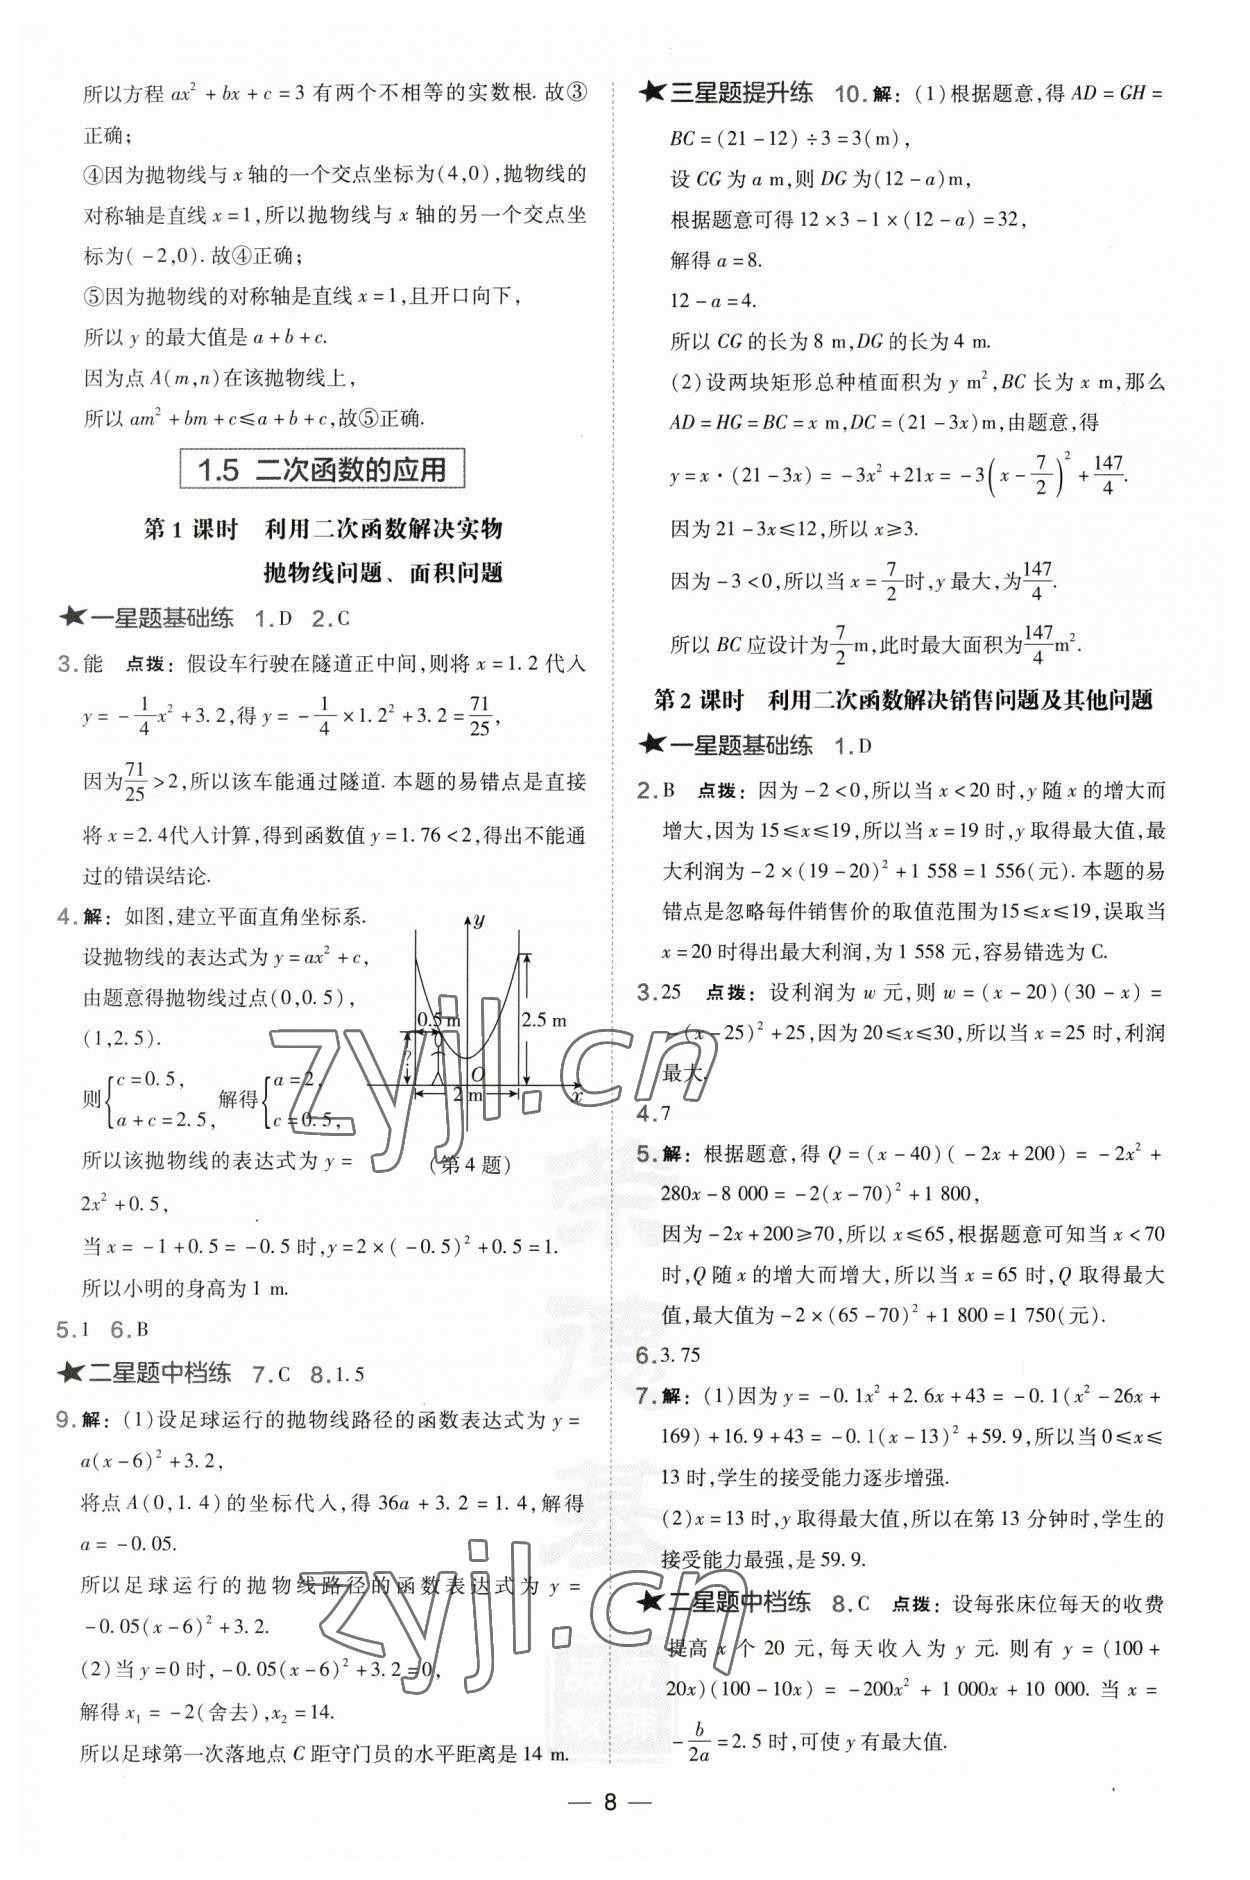 所以方程 ax² + bx + c = 3 有两个不相等的实数根. 故③
正确;
④因为抛物线与 x 轴的一个交点坐标为(4,0),抛物线的
对称轴是直线 x = 1,所以抛物线与 x 轴的另一个交点坐
标为( -2,0). 故④正确;
⑤因为抛物线的对称轴是直线 x = 1,且开口向下,
所以 y 的最大值是 a + b + c.
因为点 A(m,n)在该抛物线上,
所以 am² + bm + c ≤ a + b + c,故⑤正确.
1.5 二次函数的应用
第 1 课时 利用二次函数解决实物
抛物线问题、面积问题
★一星题基础练 1. D 2. C
3. 能 点拨: 假设车行驶在隧道正中间,则将 x = 1. 2 代入
y = -1/4 x² + 3. 2,得 y = -1/4 × 1. 2² + 3. 2 = 71/25,
因为 71/25 > 2,所以该车能通过隧道. 本题的易错点是直接
将 x = 2. 4代入计算,得到函数值 y = 1. 76 < 2,得出不能通
过的错误结论.
4. 解: 如图,建立平面直角坐标系.
设抛物线的表达式为 y = ax² + c,
由题意得抛物线过点(0,0. 5),
(1,2. 5).
则 { c = 0. 5, a + c = 2. 5, 解得 { a = 2, c = 0. 5,
所以该抛物线的表达式为 y =
2x² + 0. 5,
当 x = -1 + 0. 5 = -0. 5 时,y = 2 × ( -0. 5)² + 0. 5 = 1.
所以小明的身高为 1 m.
y
0.5 m
2.5 m
?
O
2 m
x
(第 4 题)
5. 1 6. B
★二星题中档练 7. C 8. 1. 5
9. 解: (1)设足球运行的抛物线路径的函数表达式为 y =
a(x - 6)² + 3. 2,
将点 A(0,1. 4)的坐标代入,得 36a + 3. 2 = 1. 4,解得
a = -0. 05.
所以足球运行的抛物线路径的函数表达式为 y =
-0. 05(x - 6)² + 3. 2.
(2)当 y = 0 时, -0. 05(x - 6)² + 3. 2 = 0,
解得 x₁ = -2(舍去),x₂ = 14.
所以足球第一次落地点 C 距守门员的水平距离是 14 m.
★三星题提升练 10. 解: (1)根据题意,得 AD = GH =
BC = (21 - 12) ÷ 3 = 3(m),
设 CG 为 a m,则 DG 为(12 - a)m,
根据题意可得 12 × 3 - 1 × (12 - a) = 32,
解得 a = 8.
12 - a = 4.
所以 CG 的长为 8 m,DG 的长为 4 m.
(2)设两块矩形总种植面积为 y m²,BC 长为 x m,那么
AD = HG = BC = x m,DC = (21 - 3x)m,由题意,得
y = x · (21 - 3x) = -3x² + 21x = -3(x - 7/2)² + 147/4.
因为 21 - 3x ≤ 12,所以 x ≥ 3.
因为 -3 < 0,所以当 x = 7/2 时,y 最大,为 147/4.
所以 BC 应设计为 7/2 m,此时最大面积为 147/4 m².
第 2 课时 利用二次函数解决销售问题及其他问题
★一星题基础练 1. D
2. B 点拨: 因为 -2 < 0,所以当 x < 20 时,y 随 x 的增大而
增大,因为 15 ≤ x ≤ 19,所以当 x = 19 时,y 取得最大值,最
大利润为 -2 × (19 - 20)² + 1 558 = 1 556(元). 本题的易
错点是忽略每件销售价的取值范围为15 ≤ x ≤ 19,误取当
x = 20 时得出最大利润,为 1 558 元,容易错选为 C.
3. 25 点拨: 设利润为 w 元,则 w = (x - 20)(30 - x) =
-(x - 25)² + 25,因为 20 ≤ x ≤ 30,所以当 x = 25 时,利润
最大.
4. 7
5. 解: 根据题意,得 Q = (x - 40)( -2x + 200) = -2x² +
280x - 8 000 = -2(x - 70)² + 1 800,
因为 -2x + 200 ≥ 70,所以 x ≤ 65,根据题意可知当 x < 70
时,Q 随 x 的增大而增大,所以当 x = 65 时,Q 取得最大
值,最大值为 -2 × (65 - 70)² + 1 800 = 1 750(元).
6. 3. 75
7. 解: (1)因为 y = -0. 1x² + 2. 6x + 43 = -0. 1(x² - 26x +
169) + 16. 9 + 43 = -0. 1(x - 13)² + 59. 9,所以当 0 ≤ x ≤
13 时,学生的接受能力逐步增强.
(2)x = 13 时,y 取得最大值,所以在第 13 分钟时,学生的
接受能力最强,是 59. 9.
★二星题中档练 8. C 点拨: 设每张床位每天的收费
提高 x 个 20 元,每天收入为 y 元. 则有 y = (100 +
20x)(100 - 10x) = -200x² + 1 000x + 10 000. 当 x =
-b/2a = 2. 5 时,可使 y 有最大值.
— 8 —
zyjl.cn
zyjl.cn
荣德基
品质
教辅